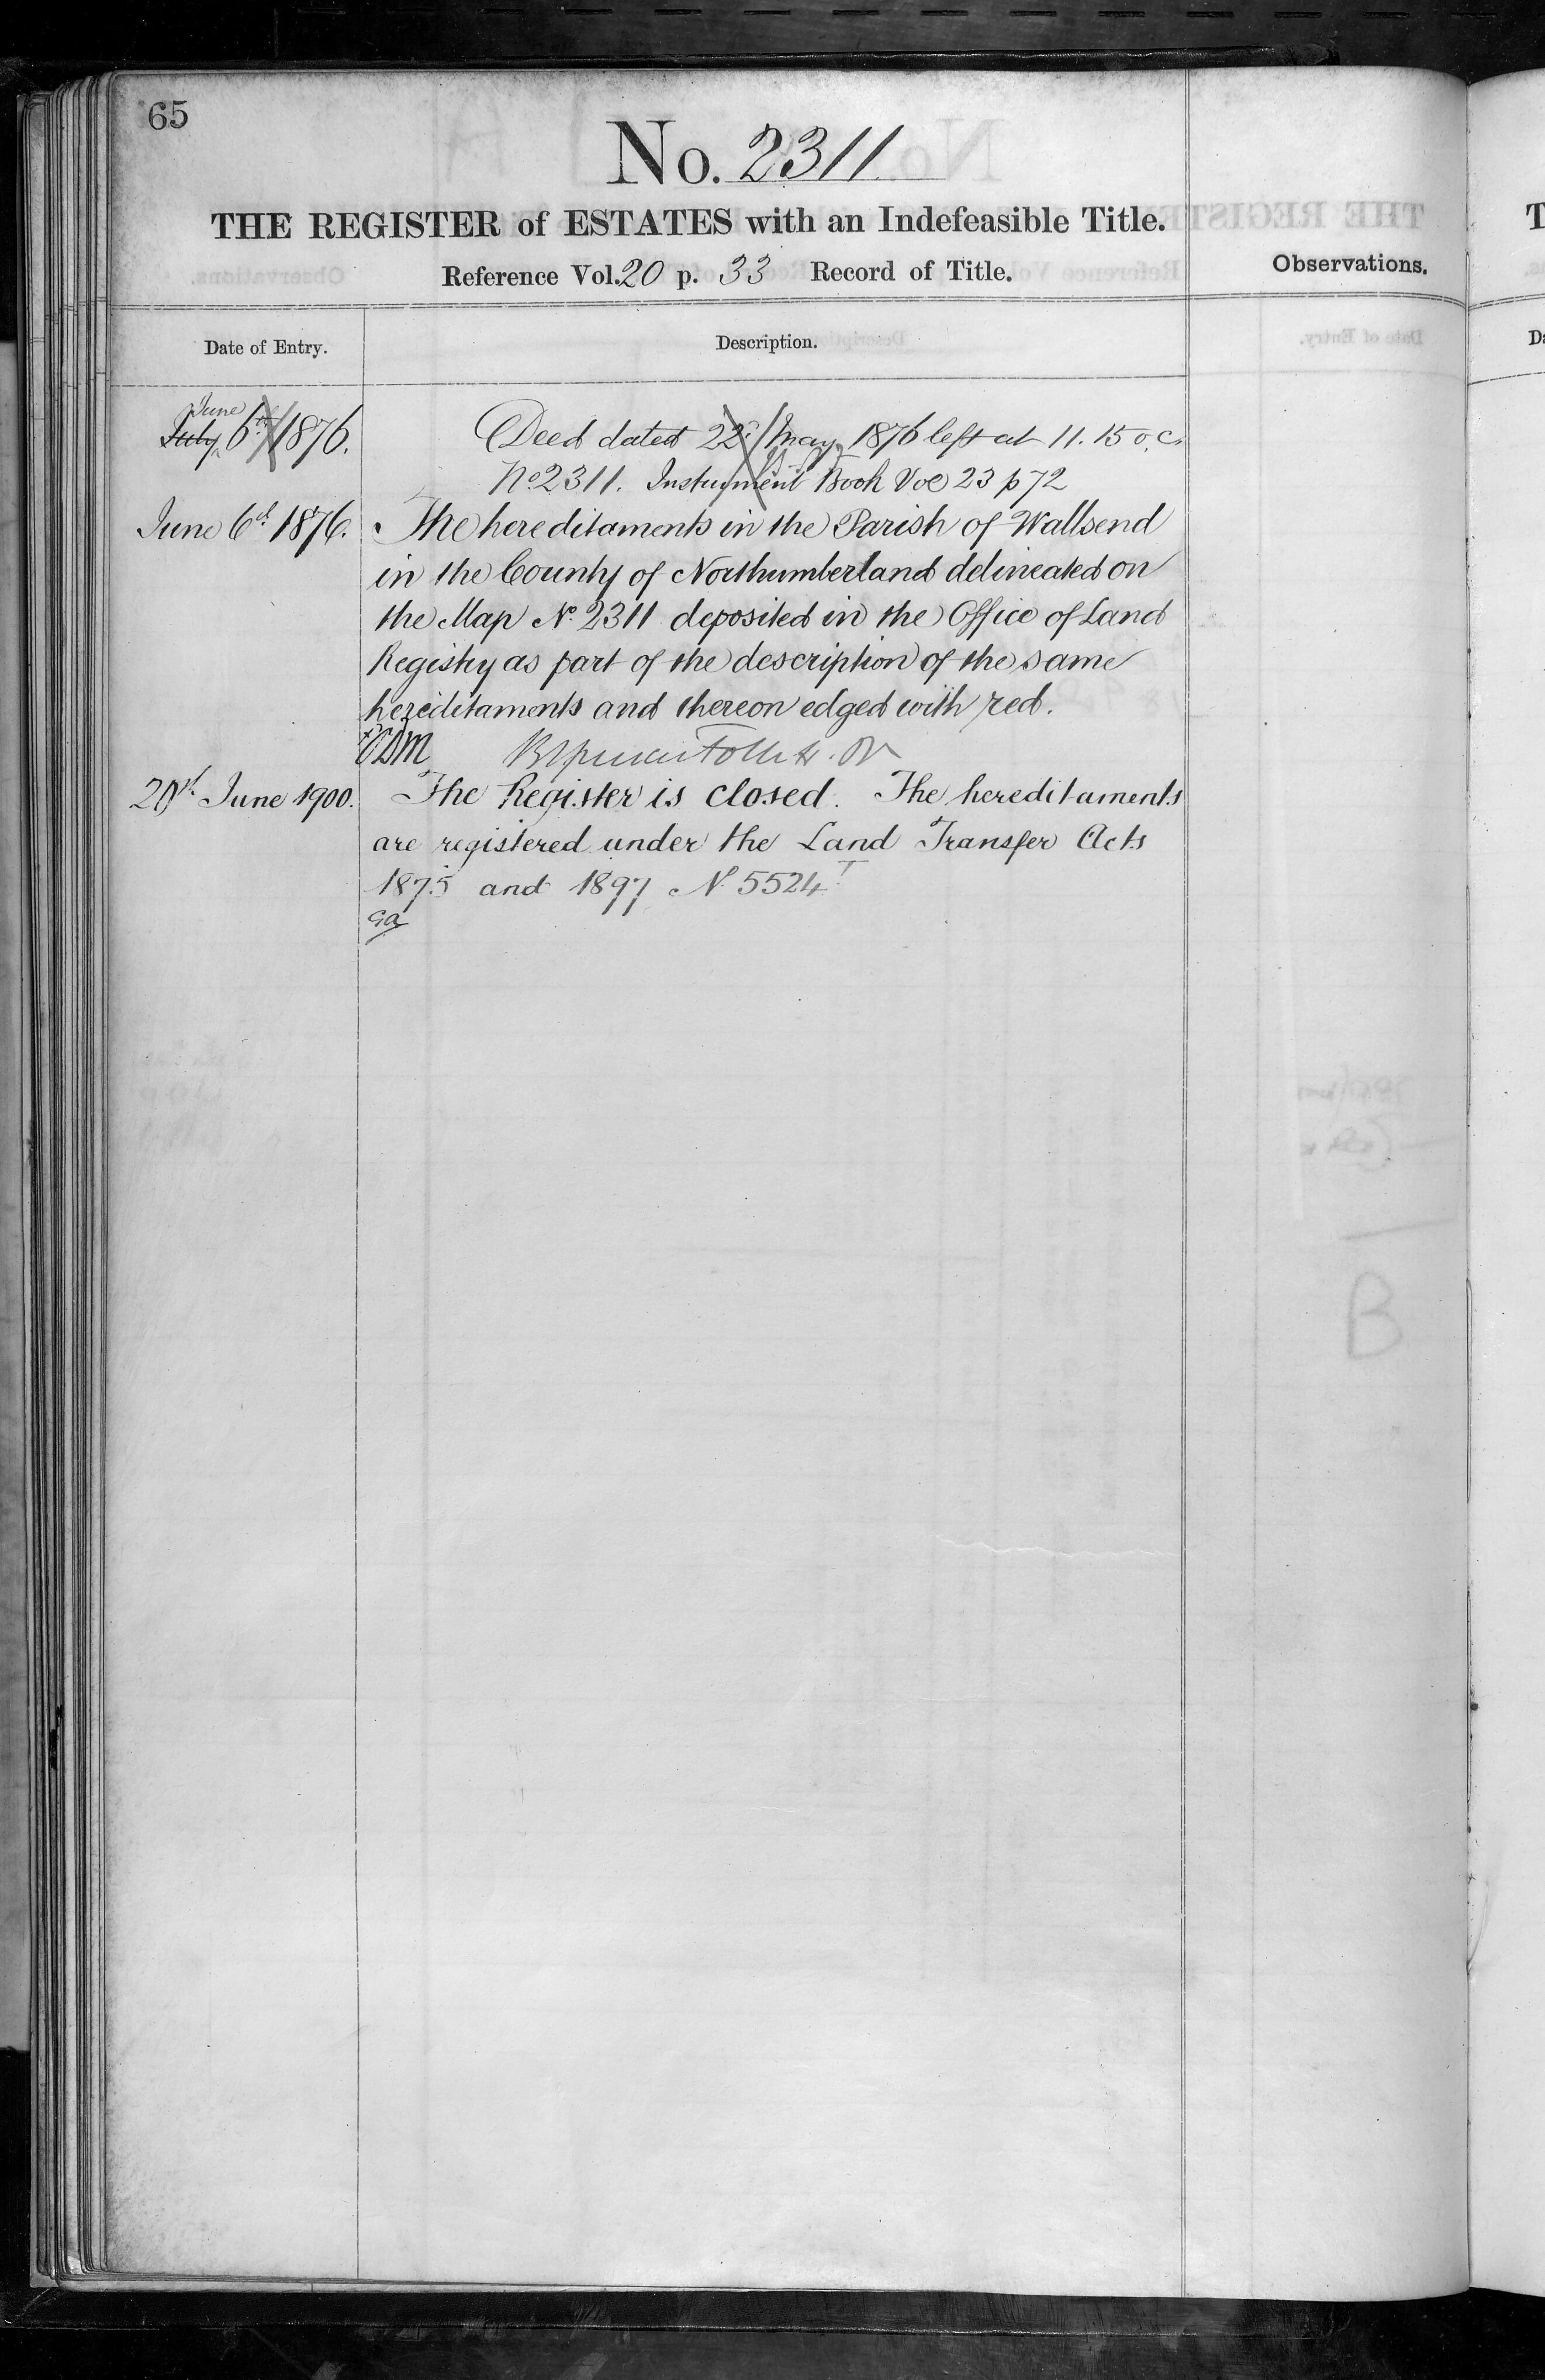 65
No. 2311
THE REGISTER of ESTATES with an Indefeasible Title.
Reference Vol. 20 p. 33 Record of Title.
Observations.
Date of Entry.
Description.
June
July 6th 1876.
Deed dated 22d May 1876 left at 11.15 o.c.
No 2311. Instrument Book Vol 23 p 72
June 6th 1876.
The hereditaments in the Parish of Wallsend
in the County of Northumberland delineated on
the Map No. 2311 deposited in the Office of Land
Registry as part of the description of the same
hereditaments and thereon edged with red.
20th June 1900.
The Register is closed. The hereditaments
are registered under the Land Transfer Acts
1875 and 1897 No. 5524